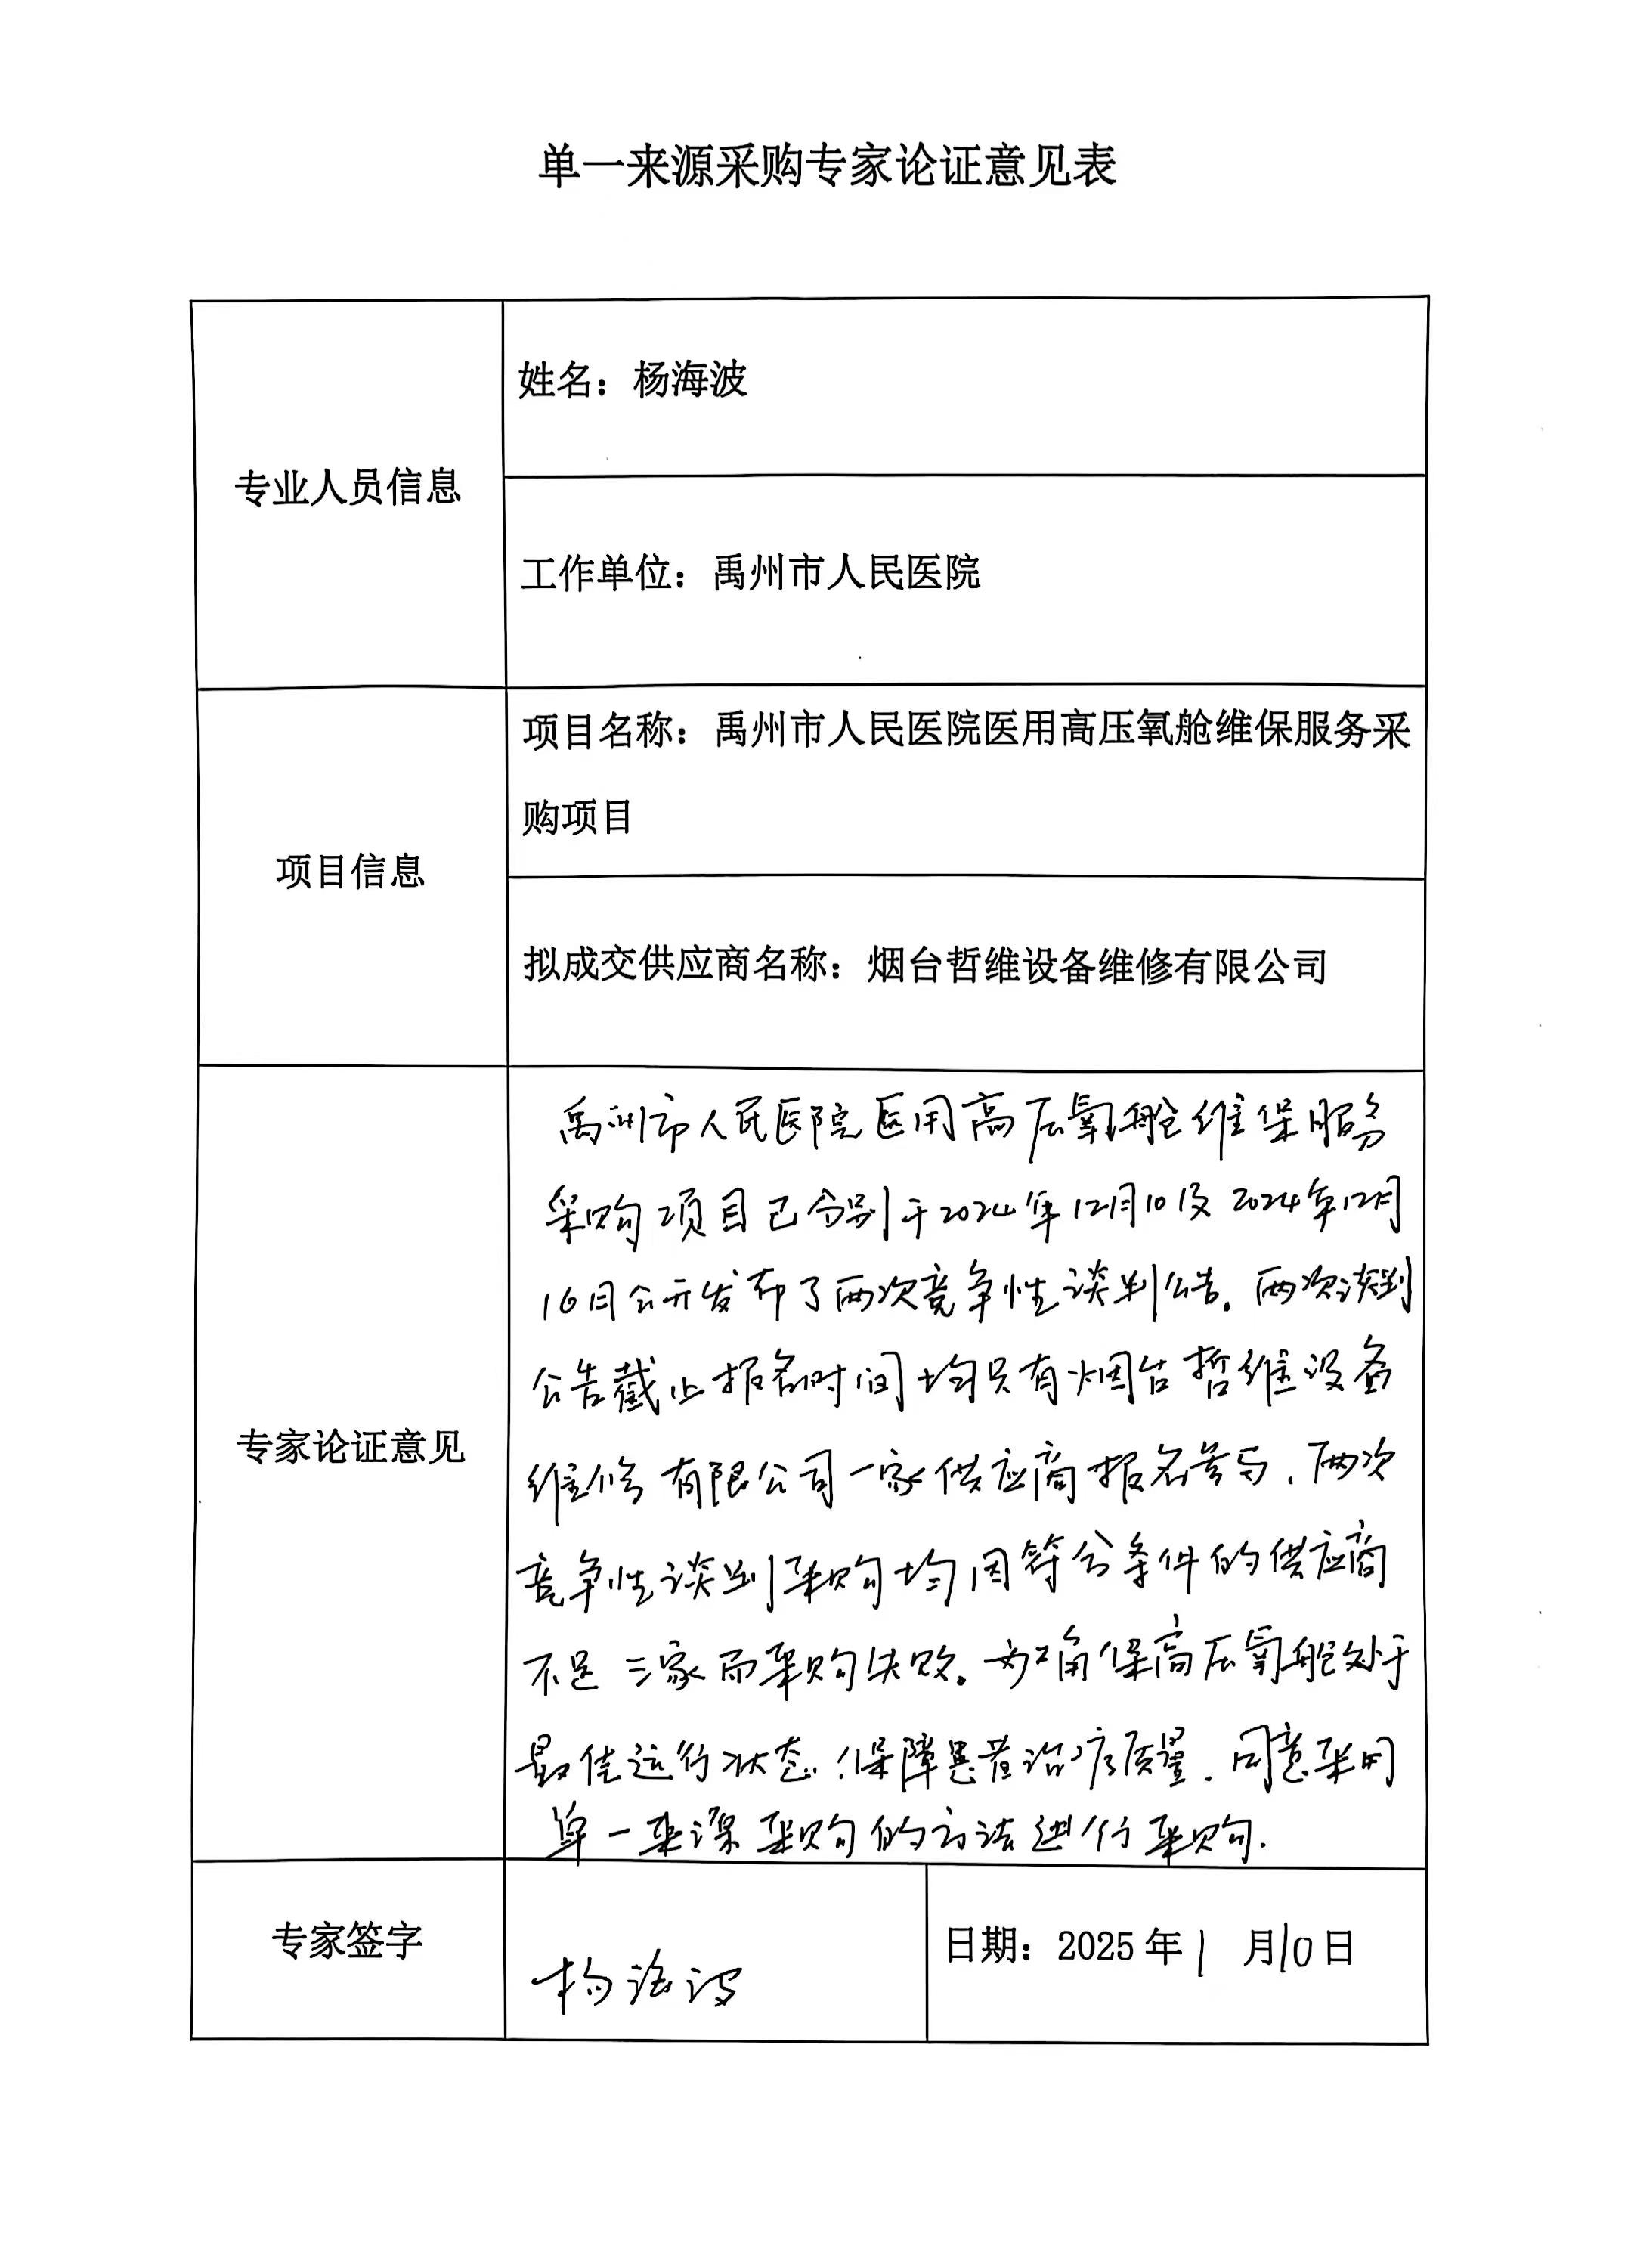 单一来源采购专家论证意见表
专业人员信息
姓名：杨海波
工作单位：禹州市人民医院
项目信息
项目名称：禹州市人民医院医用高压氧舱维保服务采
购项目
拟成交供应商名称：烟台哲维设备维修有限公司
专家论证意见
禹州市人民医院医用高压氧舱维保服务
采购项目已分别于2024年12月10及2024年12月
16日公开发布了两次竞争性谈判公告。两次谈判
公告截止报名时间均只有烟台哲维设备
维修有限公司一家供应商报名参与，两次
竞争性谈判采购均因符合条件的供应商
不足三家而采购失败。为确保高压氧舱处于
最佳运行状态，保障患者治疗质量，同意采用
单一来源采购的方法进行采购.
专家签字
杨海波
日期：2025年1月10日